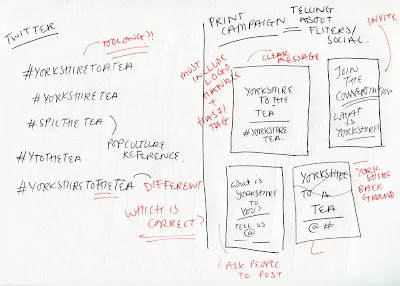 TWITTER
TOO LONG?!
#YORKSHIRETOATEA
#YORKSHIRETEA
#SPILTHETEA
POPCULTURE
REFERENCE.
#YTOTHETEA
#YORKSHIRETOTHETEA
DIFFERENT
WHICH IS
CORRECT?
PRINT
CAMPAIGN =
TELLING
ABOUT
FLITERS/
SOCIAL.
INVITE
MUST
INCLUDE
LOGO
HANDLE
+
HASH
TAG
CLEAR
MESSAGE
YORKSHIRE
TO THE
TEA
#YORKSHIRE
TEA.
JOIN
THE
CONVERSATION
WHAT
IS
YORKSHIRE?
What is
YORKSHIRE
TO
YOU?
TELL US
@
ASK PEOPLE
TO POST
YORKSHIRE
TO A
TEA
@ #
YORK
SHIRE
BACK
GROUND